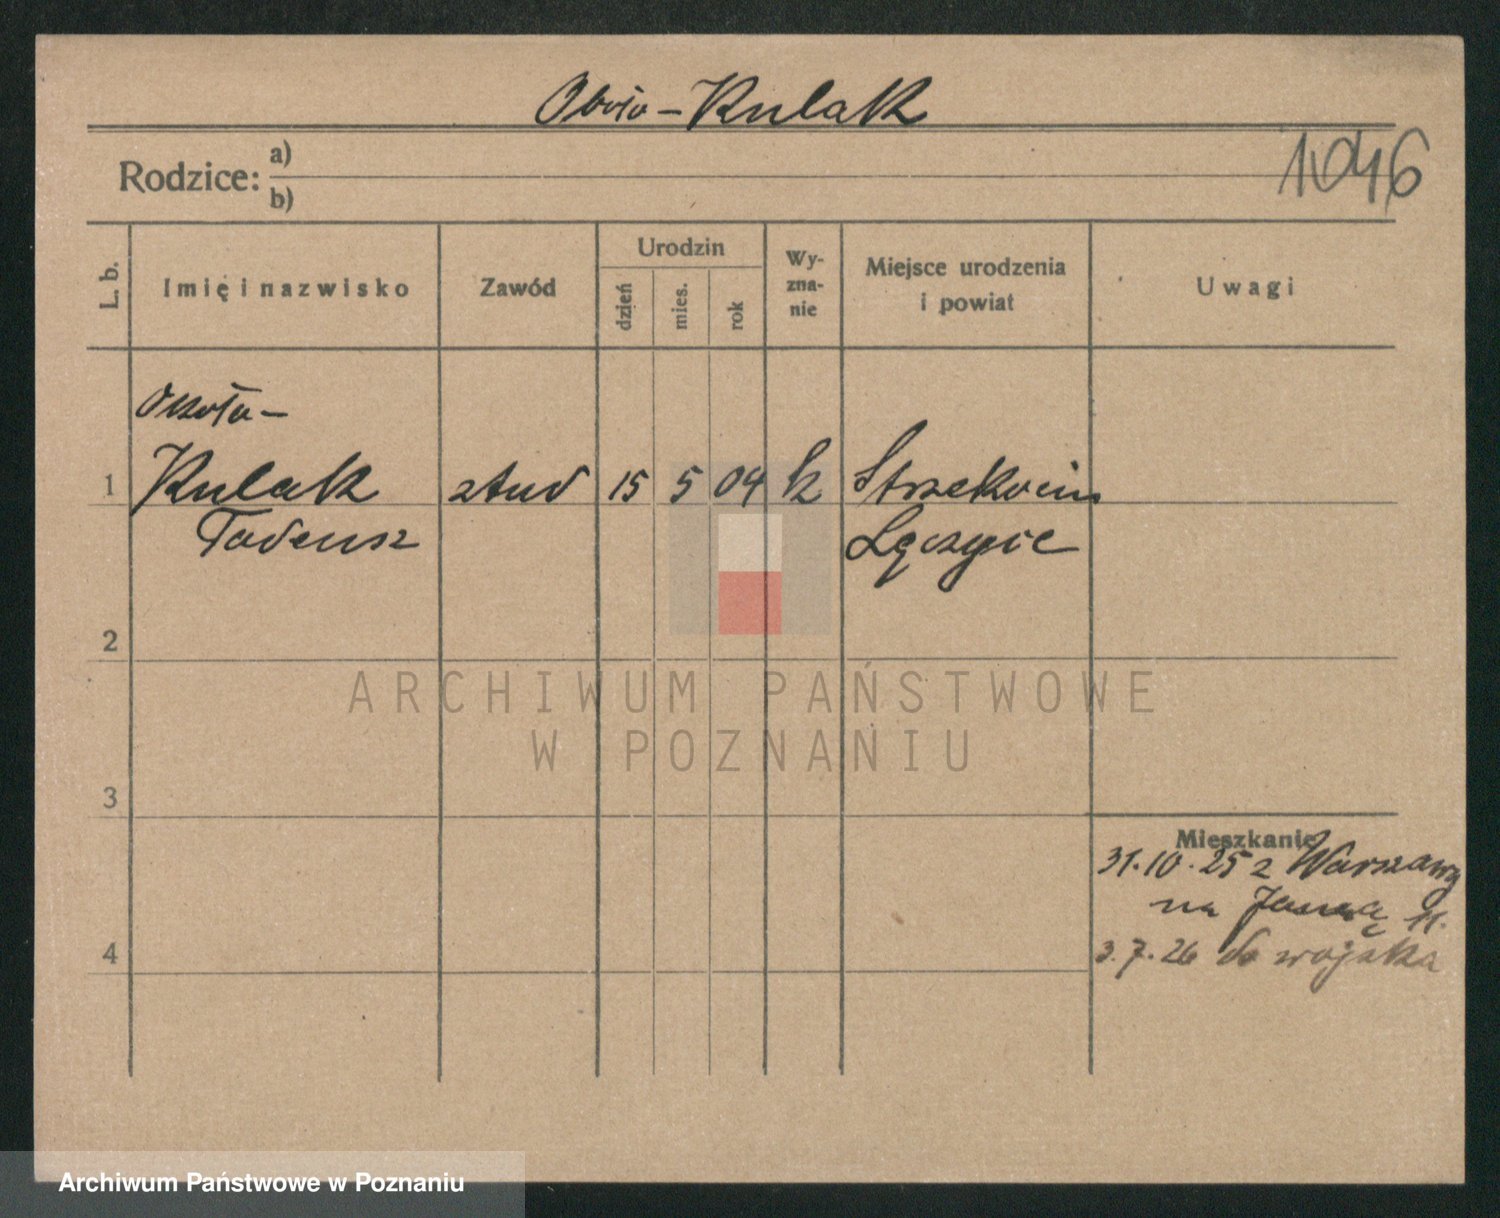 Okoła-Kulak
Rodzice: a)
b)
1046
L. b.
Imię i nazwisko
Zawód
Urodzin
dzień
mies.
rok
Wy-
zna-
nie
Miejsce urodzenia
i powiat
Uwagi
Okoła-
1 Kulak stud 15 5 04 k
Tadeusz Łęczyce
2
ARCHIWUM PAŃSTWOWE
W POZNANIU
3
Mieszkanie
31.10.25 z Warszawy
na Jasną 11.
4
3.7.26 do wojska
Archiwum Państwowe w Poznaniu